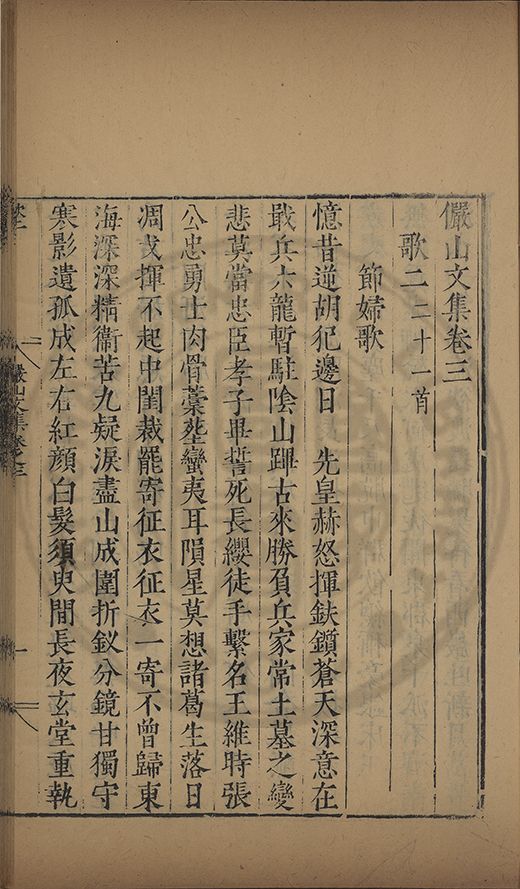 儼山文集卷三
歌二二十一首
節婦歌
憶昔逆胡犯邊日 先皇赫怒揮鈇鑕蒼天深意在
戢兵六龍暫駐陰山蹕古來勝負兵家常土墓之變
悲莫當忠臣孝子畢誓死長纓徒手繫名王維時張
公忠勇士肉骨藁塟蠻夷耳隕星莫想諸葛生落日
凋戈揮不起中閨裁罷寄征衣征衣一寄不曽歸東
海深深精衛苦九疑淚盡山成圍折釵分鏡甘獨守
寒影遺孤成左右紅顔白髮須臾間長夜玄堂重執
儼山文集卷三
一